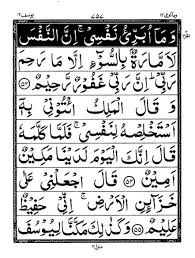 يوسف ١٢ ومآ ابرئ ١٣
وَمَاۤ اُبَرِّئُ نَفْسِیْ ۚ اِنَّ النَّفْسَ
لَاَمَّارَةٌۢ بِالسُّوْٓءِ اِلَّا مَا رَحِمَ
رَبِّیْ ؕ اِنَّ رَبِّیْ غَفُوْرٌ رَّحِیْمٌ ۵۳
وَ قَالَ الْمَلِكُ ائْتُوْنِیْ بِهٖۤ
اَسْتَخْلِصْهُ لِنَفْسِیْ ۚ فَلَمَّا كَلَّمَهٗ
قَالَ اِنَّكَ الْیَوْمَ لَدَیْنَا مَكِیْنٌ
اَمِیْنٌ ۵۴ قَالَ اجْعَلْنِیْ عَلٰی
خَزَآئِنِ الْاَرْضِ ۚ اِنِّیْ حَفِیْظٌ
عَلِیْمٌ ۵۵ وَكَذٰلِكَ مَكَّنَّا لِیُوْسُفَ